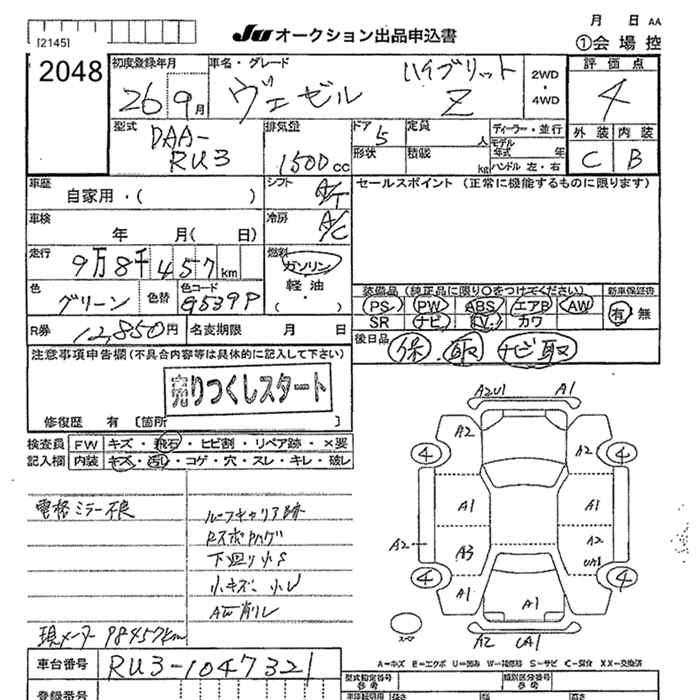 [2145]
JU オークション出品申込書
月 日 AA
①会場控
2048
初度登録年月
26 9月
車名・グレード
ヴェゼル ハイブリット Z
2WD
・
4WD
評価点
4
外装 内装
C B
型式
DAA-
RU3
排気量
1500cc
ドア 5
形状
定員 人
積載 kg
ディーラー・並行
モデル年式 年
ハンドル 左・右
車歴
自家用・( )
シフト A/T
セールスポイント (正常に機能するものに限ります)
車検
年 月( 日)
冷房 A/C
走行
9万8千457km
燃料
ガソリン
軽油
・( )
色
グリーン
色替
色コード
G539P
装備品(純正品に限り○をつけてください)
PS PW ABS エアB AW
SR ナビ TV カワ
新車保証書
有 無
R券 12,850円
名変期限 月 日
後日品 保.取 ナビ取
注意事項申告欄(不具合内容等は具体的に記入して下さい)
売りつくしスタート
修復歴 有 [箇所 ]
検査員 FW キズ・飛石・ヒビ割・リペア跡・×要
記入欄 内装 キズ・汚レ・コゲ・穴・スレ・キレ・破レ
電格ミラー不良
ルーフキャリア跡
RスポUハゲ
下廻り小S
小キズ、小U
AW削レ
現メーター 98457km
A2U1 A1
A2 A2
4 4
A1 A1
A2 A3 A2
UA1
4 4
A1 A1 A1
スペア
A2 UA1
A=キズ E=エクボ U=凹み W=補修跡 S=サビ C=腐食 XX=交換済
車台番号 RU3-1047321
登録番号
型式指定番号
類別区分番号